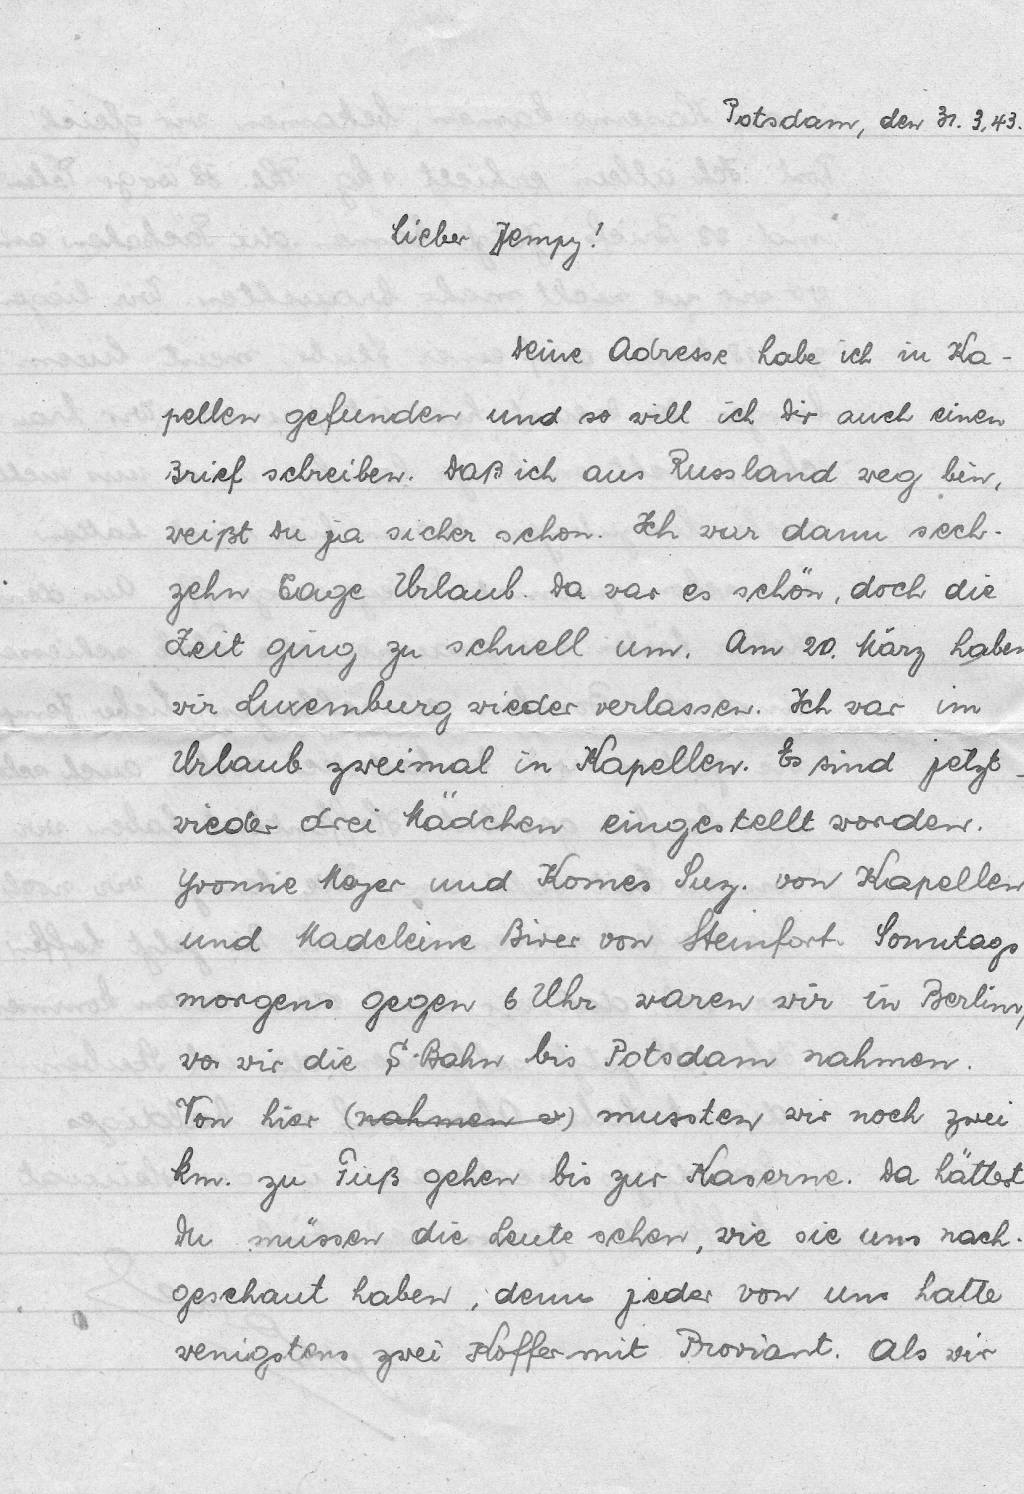 Potsdam, den 31. 3. 43.
Lieber Jempy!
Deine Adresse habe ich in Ka-
pellen gefunden und so will ich Dir auch einen
Brief schreiben. Daß ich aus Russland weg bin,
weißt Du ja sicher schon. Ich war dann sech-
zehn Tage Urlaub. Da war es schön, doch die
Zeit ging zu schnell um. Am 20. März haben
wir Luxemburg wieder verlassen. Ich war im
Urlaub zweimal in Kapellen. Es sind jetzt
wieder drei Mädchen eingestellt worden.
Yvonne Meyer und Komes Suz. von Kapellen
und Madeleine Biver von Steinfort. Sonntags
morgens gegen 6 Uhr waren wir in Berlin,
wo wir die S-Bahn bis Potsdam nahmen.
Von hier (nahmen w) mussten wir noch zwei
km. zu Fuß gehen bis zur Kaserne. Da hättest
Du müssen die Leute sehen, wie sie uns nach-
geschaut haben, denn jeder von uns hatte
wenigstens zwei Koffer mit Proviant. Als wir